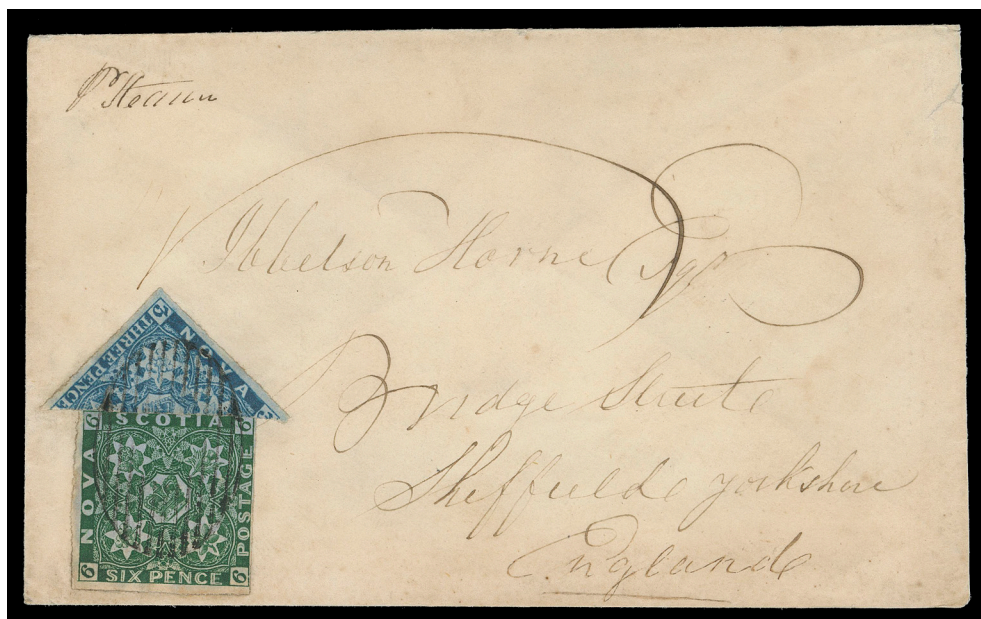 Pr Steam
Ibbetson Horne Esqr
Bridge Street
Sheffield Yorkshire
England
3 THREE PENCE
NOVA
6 SCOTIA 6
NOVA
POSTAGE
6 SIX PENCE 6